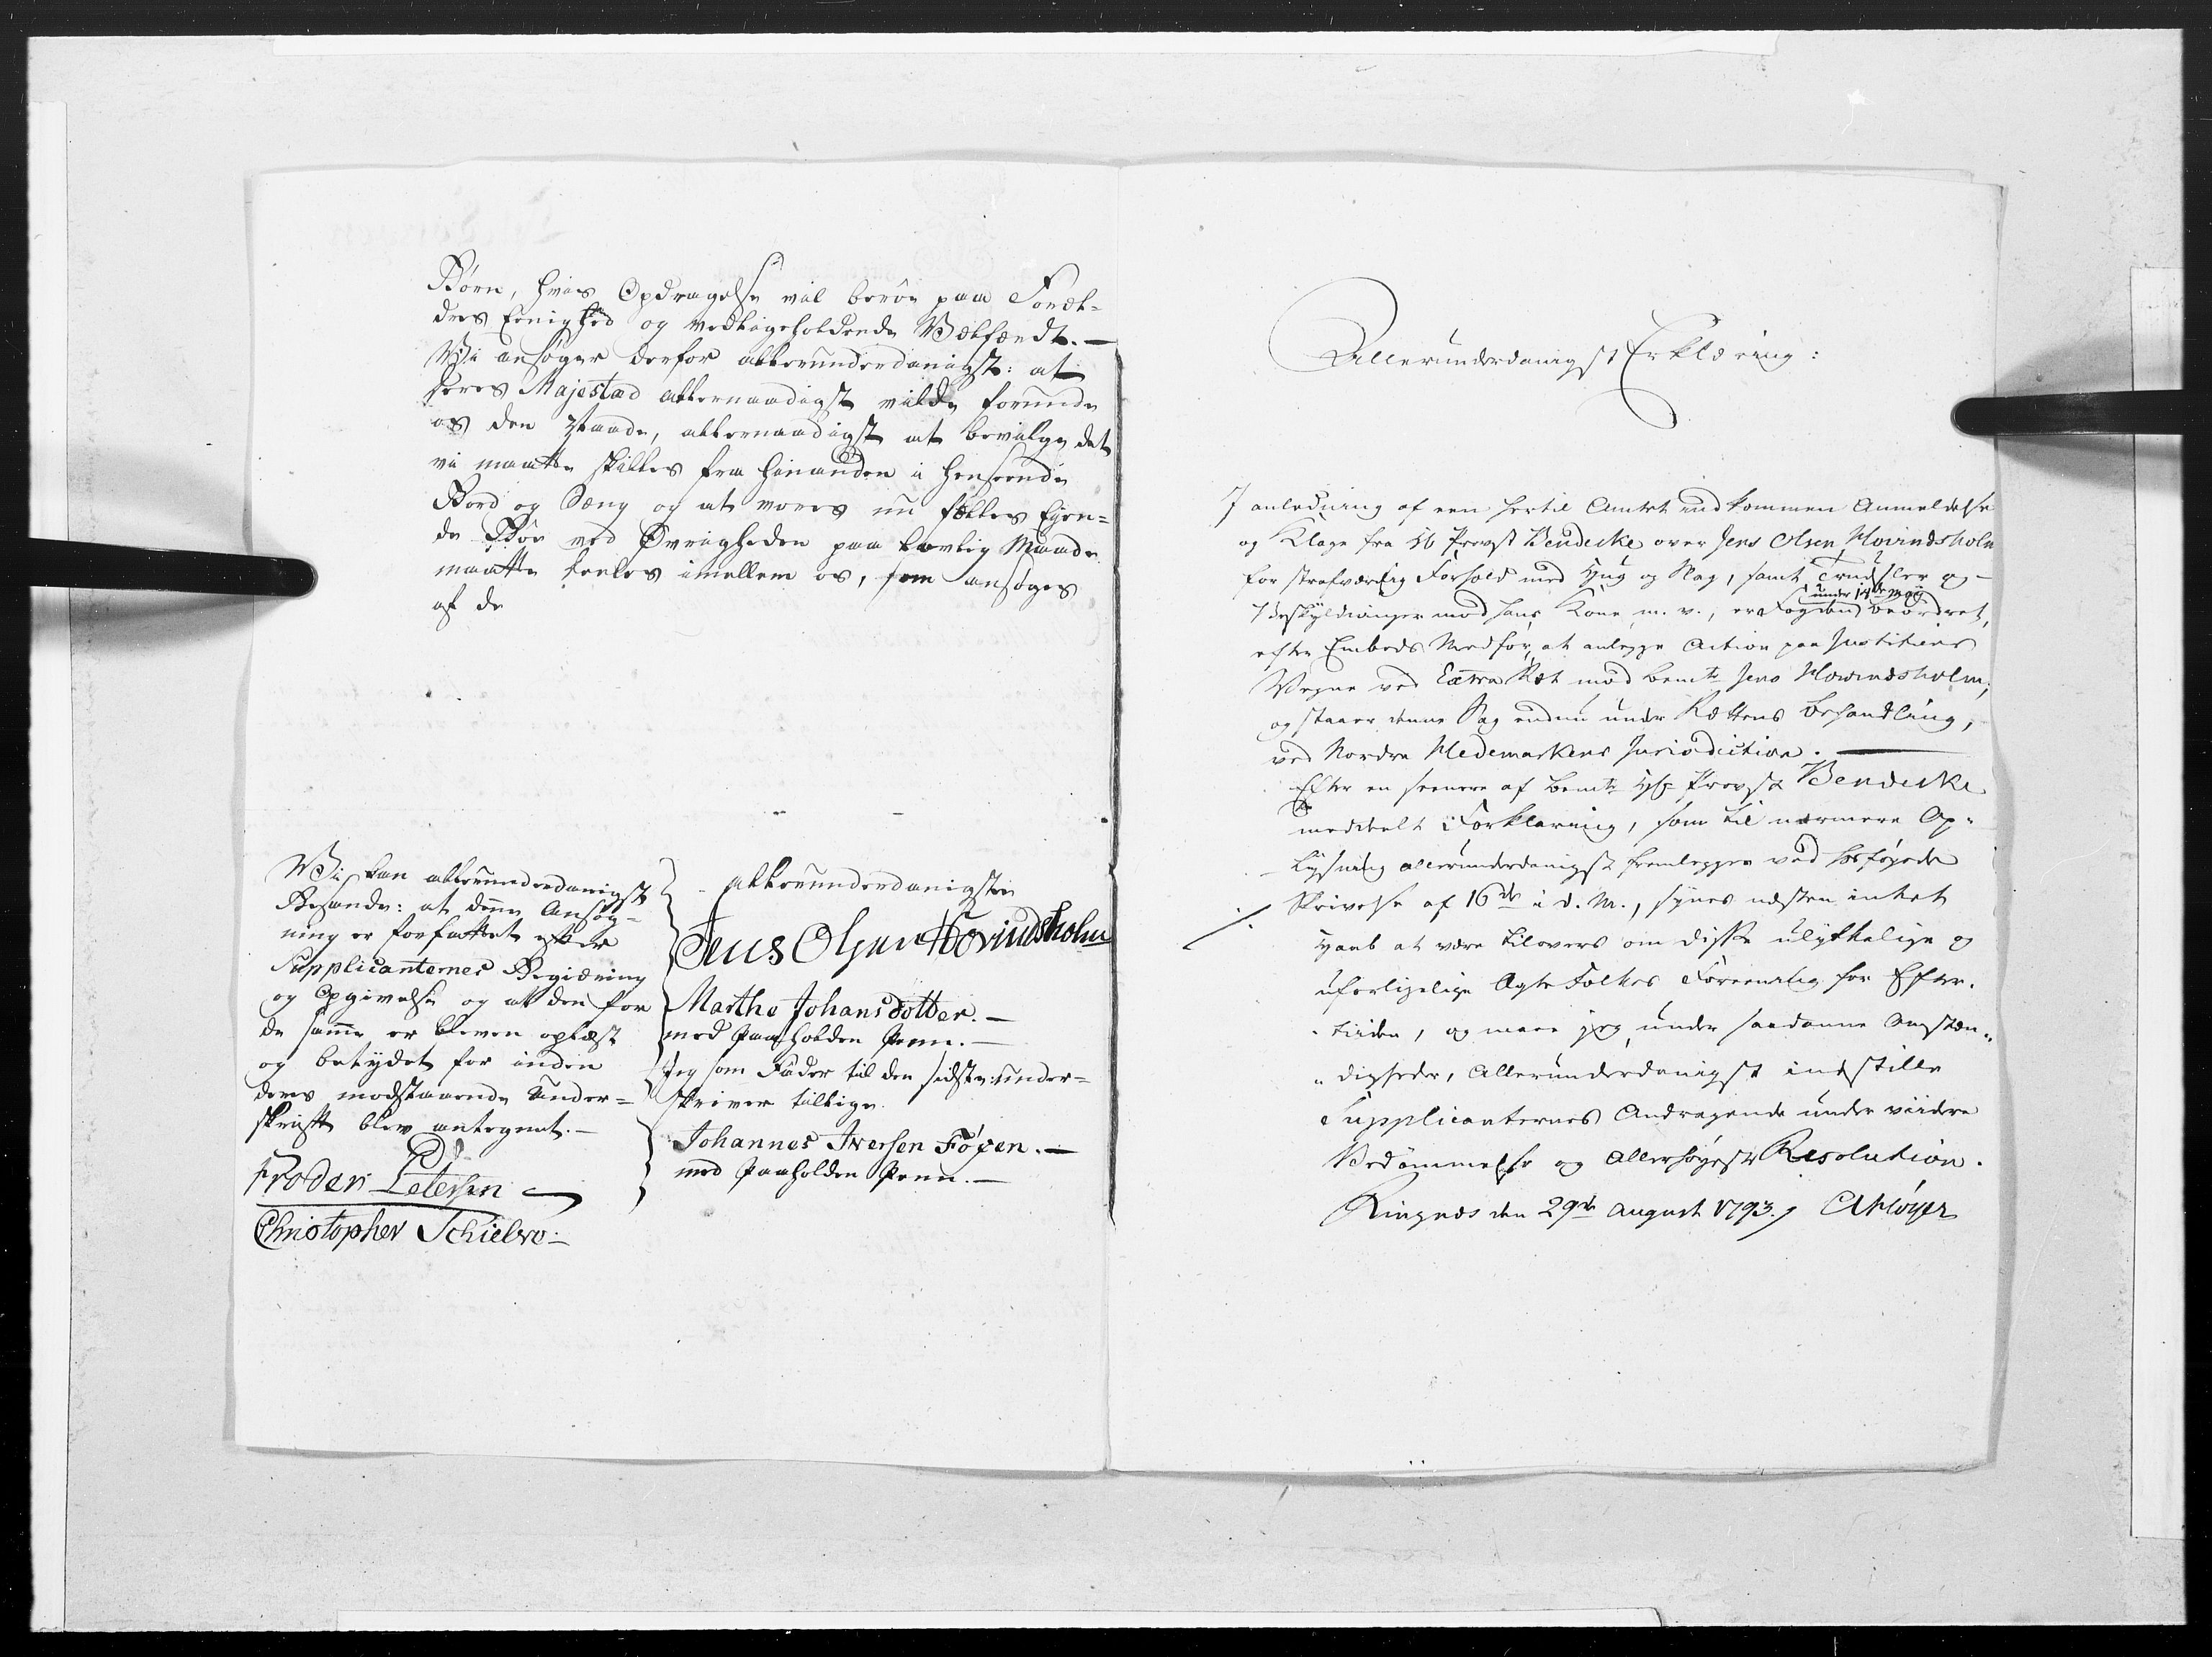 Børn, hvis Opdragelse vil beroe paa Foræl-
dres Eenighed og vedligeholdende Velfærdt. —
Wi ansøger derfor allerunderdanigst: at
Deres Majestæd allernaadigst vilde forunde
os den Naade, allernaadigst at bevilge det
vi maatte skilles fra hinanden i henseende
Bord og Sæng og at vores nu fælles Eyen-
de Boe ved Øvrigheden paa lovlig Maade
maatte deeles imellem os, som ansøges
af de
Wi kan allerunderdanigst
Bevidne: at denne Ansøg-
ning er forfattet efter
Supplicanternes Begiæring
og Opgivelse og at den for
de samme er bleven oplæst
og betydet for inden
deres modstaaende Under-
skrift blev antegnet. —
Froder Petersen
Christopher Schielbro. —
allerunderdanigste
Jens Olsen Hovindsholm
Marthe Johansdotter. —
med Paaholden Penn. —
Jeg som Fader til den sidste under-
skriver tillige.
Johannes Iversen Føjen. —
med Paaholden Penn. —
Allerunderdanigst Erklæring:
I anledning af een hertil Amtet indkommen Anmeldelse
og Klage fra Hr Provst Bendeke over Jens Olsen Hovindsholm
for strafværdig Forhold med Hug og Slag, samt Trudsler og
beskyldninger mod hans Kone m. v., er Fogden under 14de May beordret,
efter Embeds Medfør, at anlegge Action paa Justitiens
Vegne ved Extra Ret mod bemte Jens Howindsholm;
og staaer denne Sag endnu under Rettens behandling,
ved Nordre Hedemarkens Jurisdiction. —
Efter en seenere af bemte Hr Provst Bendeke
meddeelt Forklaring, som til nærmere Op-
lysning allerunderdanigst fremlegges ved hosføyede
Skrivelse af 16de i d. M., synes næsten intet
Haab at være tilovers om disse ulykkelige og
uforligelige Ægte Folkes Foreening for Efter-
tiiden, og maae jeg, under saadanne Omstæn-
digheder, allerunderdanigst indstille
Supplicanternes Andragende under viidere
Bedømmelse og Allerhøyeste Resolution.
Ringnæs den 29de August 1793.